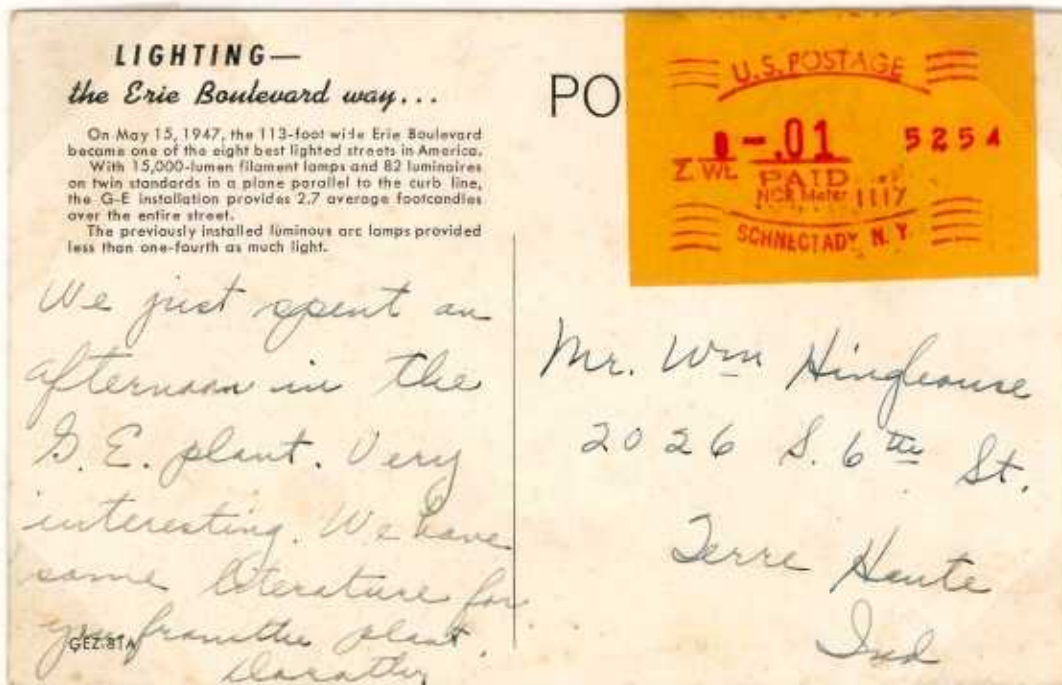 LIGHTING—
the Erie Boulevard way...
On May 15, 1947, the 113-foot wide Erie Boulevard
became one of the eight best lighted streets in America.
With 15,000-lumen filament lamps and 82 luminaires
on twin standards in a plane parallel to the curb line,
the G-E installation provides 2.7 average footcandles
over the entire street.
The previously installed luminous arc lamps provided
less than one-fourth as much light.
We just spent an
afternoon in the
G. E. plant. Very
interesting. We have
some literature for
you from the plant.
Dorothy
GEZ-81A
PO
U.S. POSTAGE
-.01 5254
Z. Wt. PAID
NCR Meter 1117
SCHNECTADY N. Y.
Mr. Wm Hinghouse
2026 S. 6th St.
Terre Haute
Ind